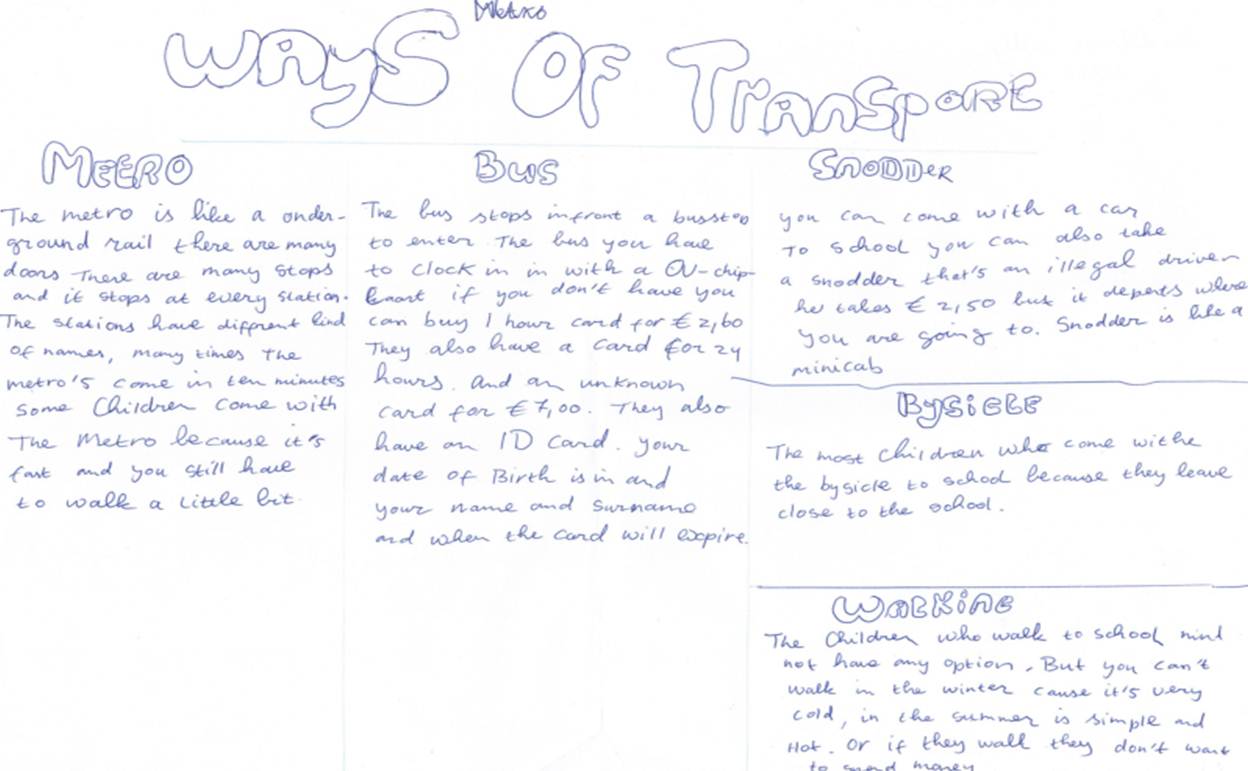 Metro
WAyS OF TranSpoRE
MEERO
The metro is like a onder-
ground rail there are many
doors There are many stops
and it stops at every station.
The stations have diffrent kind
of names, many times the
metro's come in ten minutes
some Children come with
The Metro because it's
fast and you still have
to walk a little bit
Bus
The bus stops infront a busstop
to enter. The bus you have
to clock in in with a OV-chip-
kaart if you don't have you
can buy 1 hour card for € 2,60
They also have a card for 24
hours. And an unknown
card for € 7,00. They also
have an ID card. your
date of Birth is in and
your name and surname
and when the card will expire.
SnoDDer
you can come with a car
To school you can also take
a snodder that's an illegal driver
he takes € 2,50 but it depents where
you are going to. Snodder is like a
minicab
BysiclE
The most Children who come withe
the bysicle to school because they leave
close to the school.
WalKing
The Children who walk to school
not have any option. But you can't
walk in the winter cause it's very
cold, in the summer is simple and
Hot. Or if they walk they don't want
to spend money